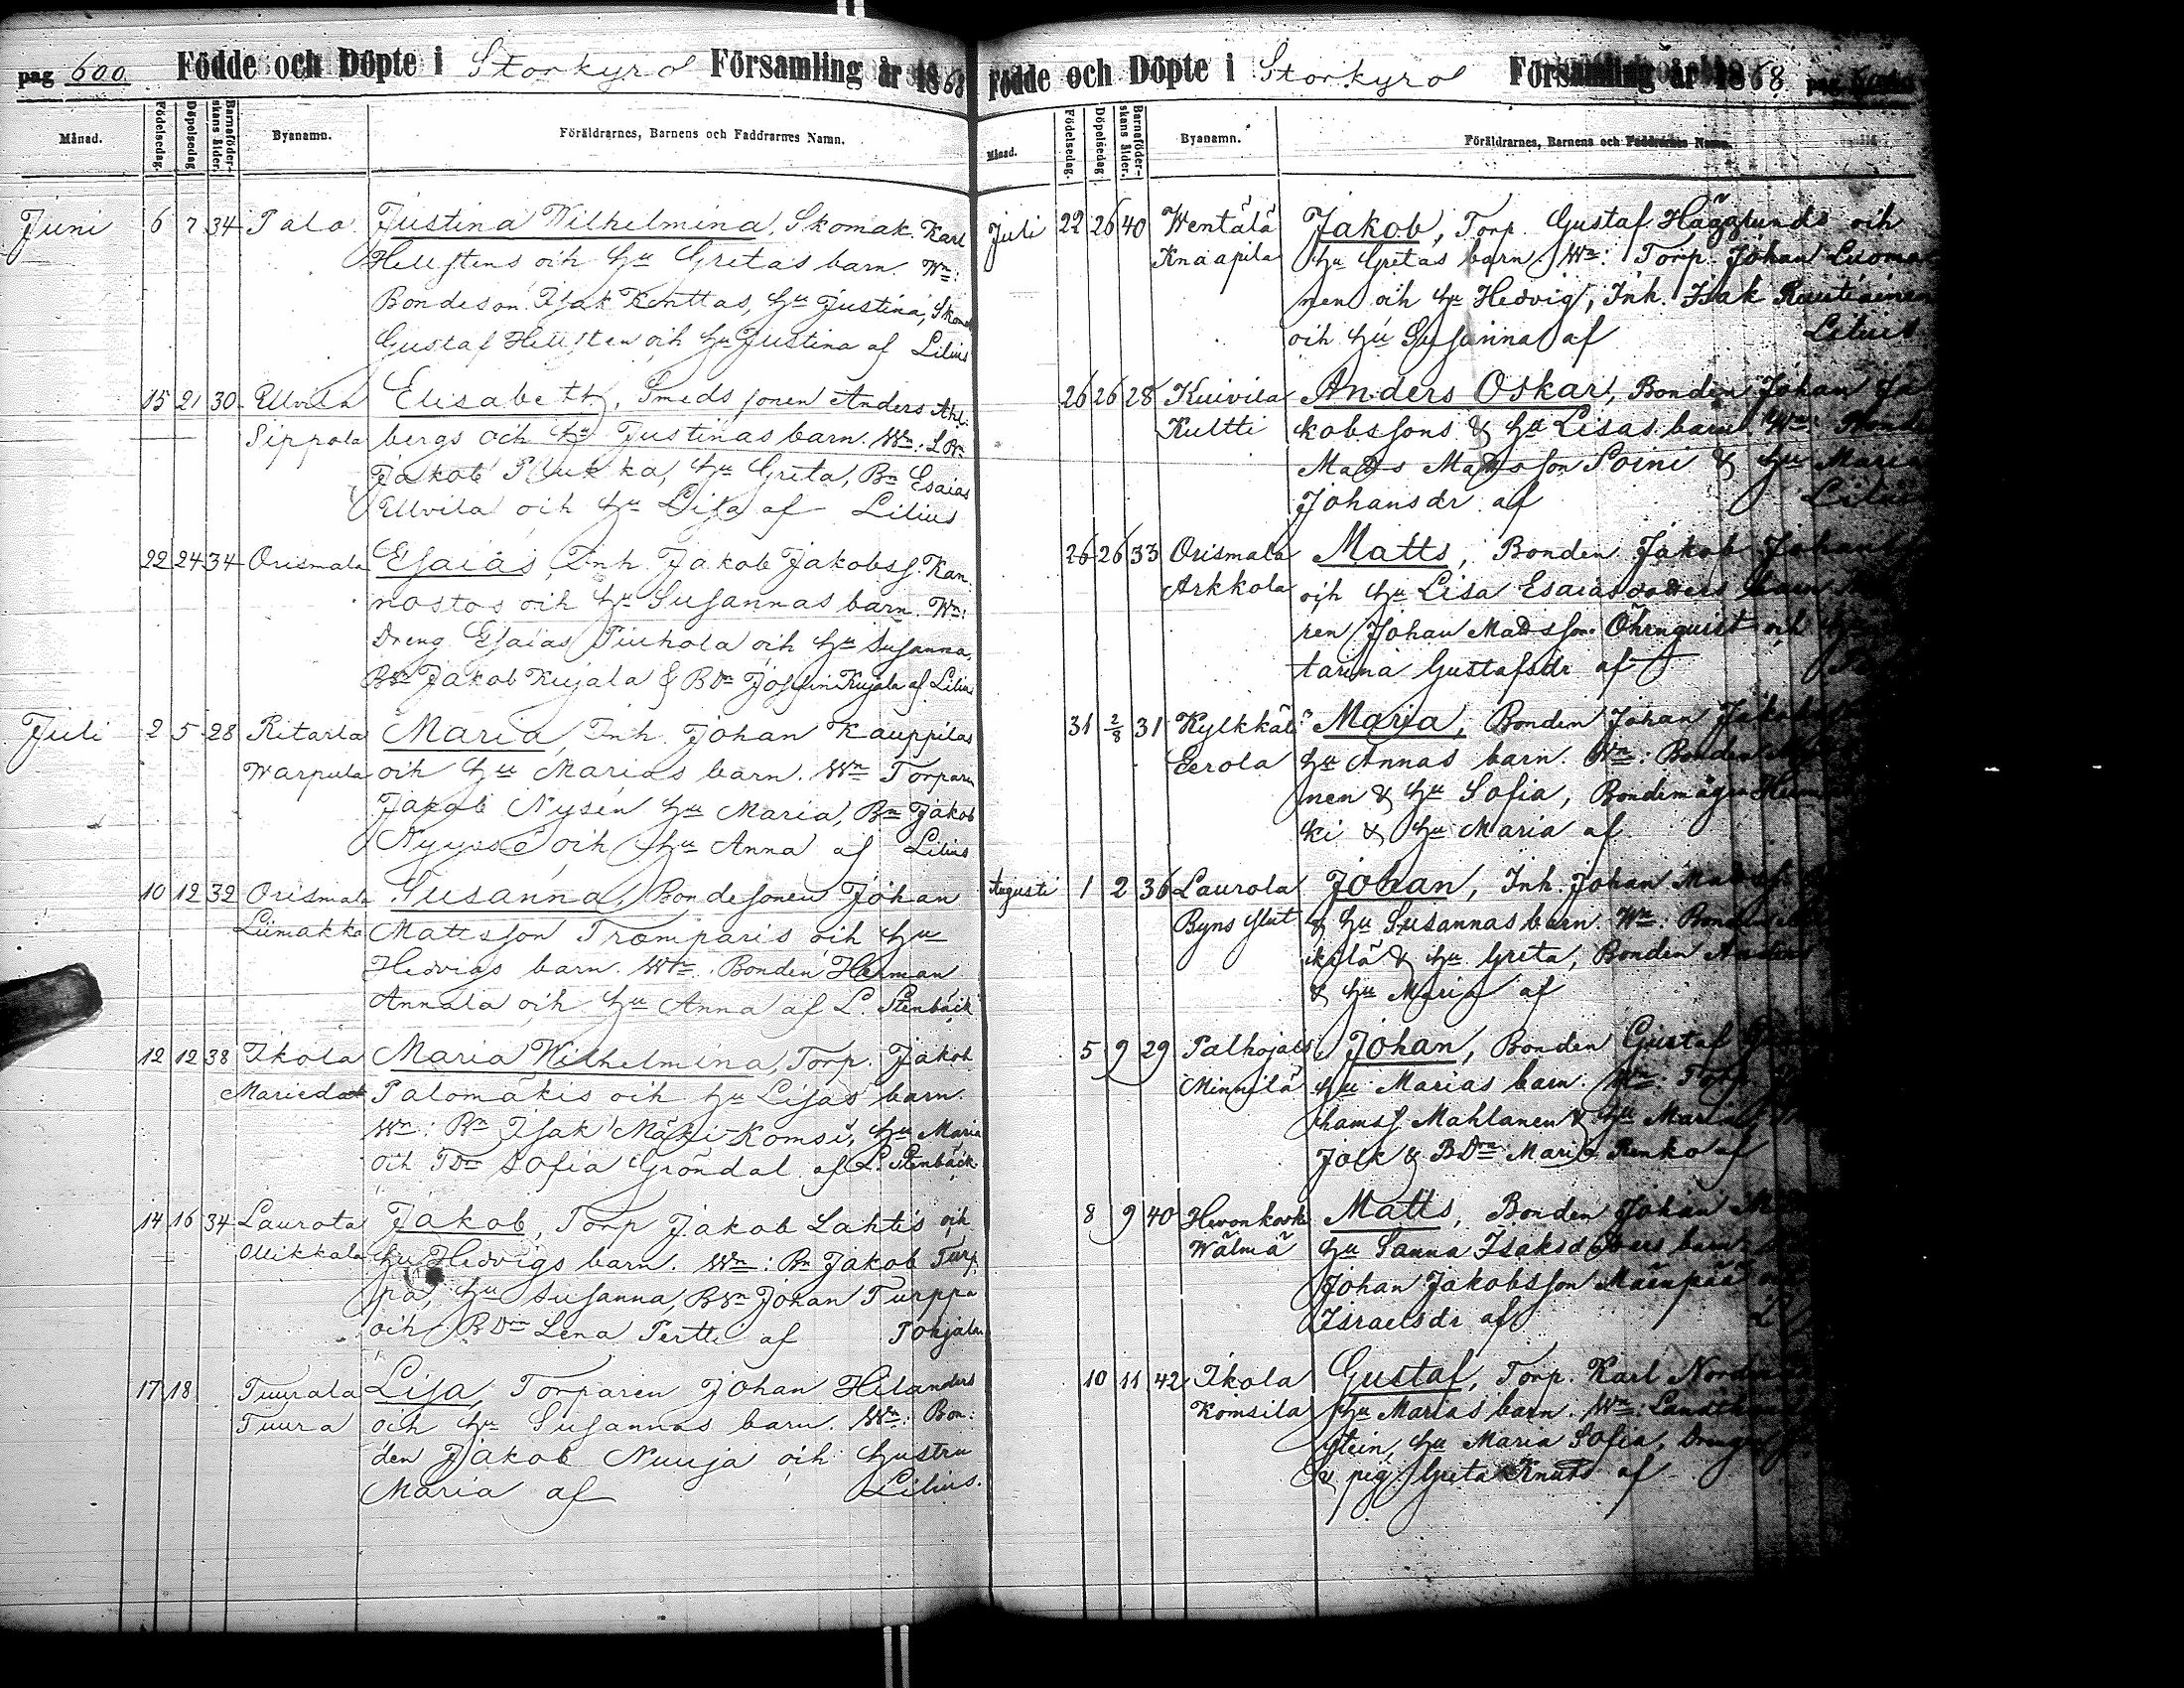 pag 600. Födde och Döpte i Storkyro Församling år 1868
Månad. Födelsedag. Döpelsedag Barnaföderskans ålder. Byanamn. Föräldrarnes, Barnens och Faddrarnes Namn.
Juni 6 7 34 Palo Justina Wilhelmina, Skomak. Karl
Hellstens och hu Gretas barn. Wn:
Bondeson Isak Kenttas, hu Justina, Skom
Gustaf Hellsten och hu Justina af Lilius
15 21 30 Ullvila Elisabeth, Smeds sonen Anders Ahl-
Sippola bergs och hu Justinas barn. Wn:
Jakob Pukka, hu Greta, Bn Esaias
Ullvila och hu Lisa af Lilius
22 24 34 Orismala Esaias, Inh. Jakob Jakobss. Kan-
nostos och hu Susannas barn. Wn:
Dreng Esaias Tiuhola och hu Susanna,
Jakob Kujala & Kujala af Lilius
Juli 2 5 28 Ritarla Maria, Inh. Johan Kauppilas
Warpula och hu Marias barn. Wn Torparn
Jakob Nysén hu Maria, Bn Jakob
Nyyssé och hu Anna af Lilius
10 12 32 Orismala Susanna, Bondesonen Johan
Liimakka Mattsson Tromparis och hu
Hedvigs barn. Wn. Bonden Herman
Annala och hu Anna af L. Stenbäck
12 12 38 Ikola Maria Wilhelmina, Torp. Jakob
Mariedal Palomäkis och hu Lisas barn.
Wn: Bn Isak Mäki-Komsi, hu Maria
och TDn Sofia Gröndal af L. Stenbäck
14 16 34 Laurola Jakob, Torp Jakob Lahtis och
Ollikkala hu Hedvigs barn. Wn: Bn Jakob Turp-
pa, hu Susanna, Johan Turppa
och BDn Lena Pertti af Pohjala
17 18 Tuurala Lisa, Torparen Johan Hilanders
Tuura och hu Susannas barn. Wn: Bon-
den Jakob Nuuja och hustru
Maria af Lilius.
Födde och Döpte i Storkyro Församling år 1868 pag
Månad. Födelsedag. Döpelsedag Barnaföderskans ålder. Byanamn. Föräldrarnes, Barnens och Faddrarnes Namn.
Juli 22 26 40 Wentälä Jakob, Torp. Gustaf Hägglunds och
Knaapila hu Gretas barn. Wn: Torp. Johan Luoma-
nen och hu Hedvig, Inh. Isak
och hu Susanna af Lilius
26 26 28 Kuivila Anders Oskar, Bonden Johan Ja-
Kultti kobssons & hu Lisas barn. Wn: Bonden
Matts Mattsson Soini & hu Maria
Johansdr af Lilius
26 26 33 Orismala Matts, Bonden Jakob Johans
Arkkola och hu Lisa Esaiasdotters barn
ren Johan Mattsson Öhrnquist och
tarina Gustafsdr af
31 2/8 31 Kylkkälä Maria, Bonden Johan Jakobs
Eerola hu Annas barn. Wn: Bonden
nen & hu Sofia, Bondemågen
ki & hu Maria af
Augusti 1 2 36 Laurola Johan, Inh. Johan
Byns slut & hu Susannas barn. Wn: Bonde
kilä & hu Greta, Bonden Anders
& hu Maria af
5 9 29 Palhojais Johan, Bonden Gustaf
Minnilä hu Marias barn. Wn: Torp.
hamss. Mahlanen & hu Maria,
Jolk & BDrn Maria Renko af
8 9 40 Hevonkosk Matts, Bonden Johan
Wälmä hu Sanna Isaksdotters barn
Johan Jakobsson Mäenpää
Israelsdr af
10 11 42 Ikola Gustaf, Torp. Karl
Komsila hu Marias barn. Wn:
stein, hu Maria Sofia, Dreng
& pig. Greta Knuts af